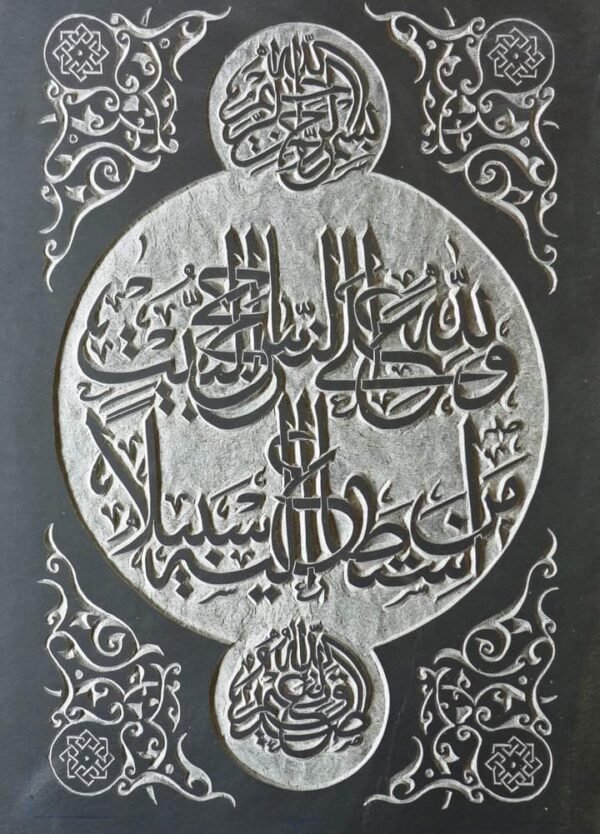 بسم الله الرحمن الرحيم
ولله على الناس حج البيت
من استطاع إليه سبيلا
الله